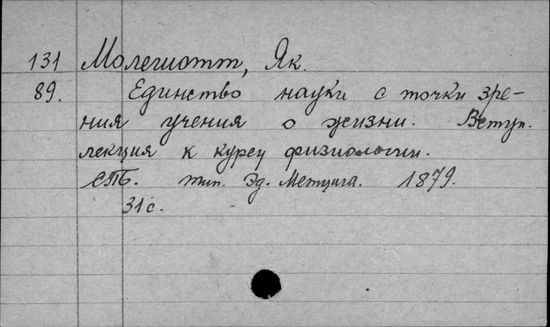 131 Молешотт, Як.
89. Единство науки с точки зре-
ния учения о жизни. Вступ.
лекция к курсу физиологии.
СПб. тип. Эд. Метцига. 1879.
31 с.